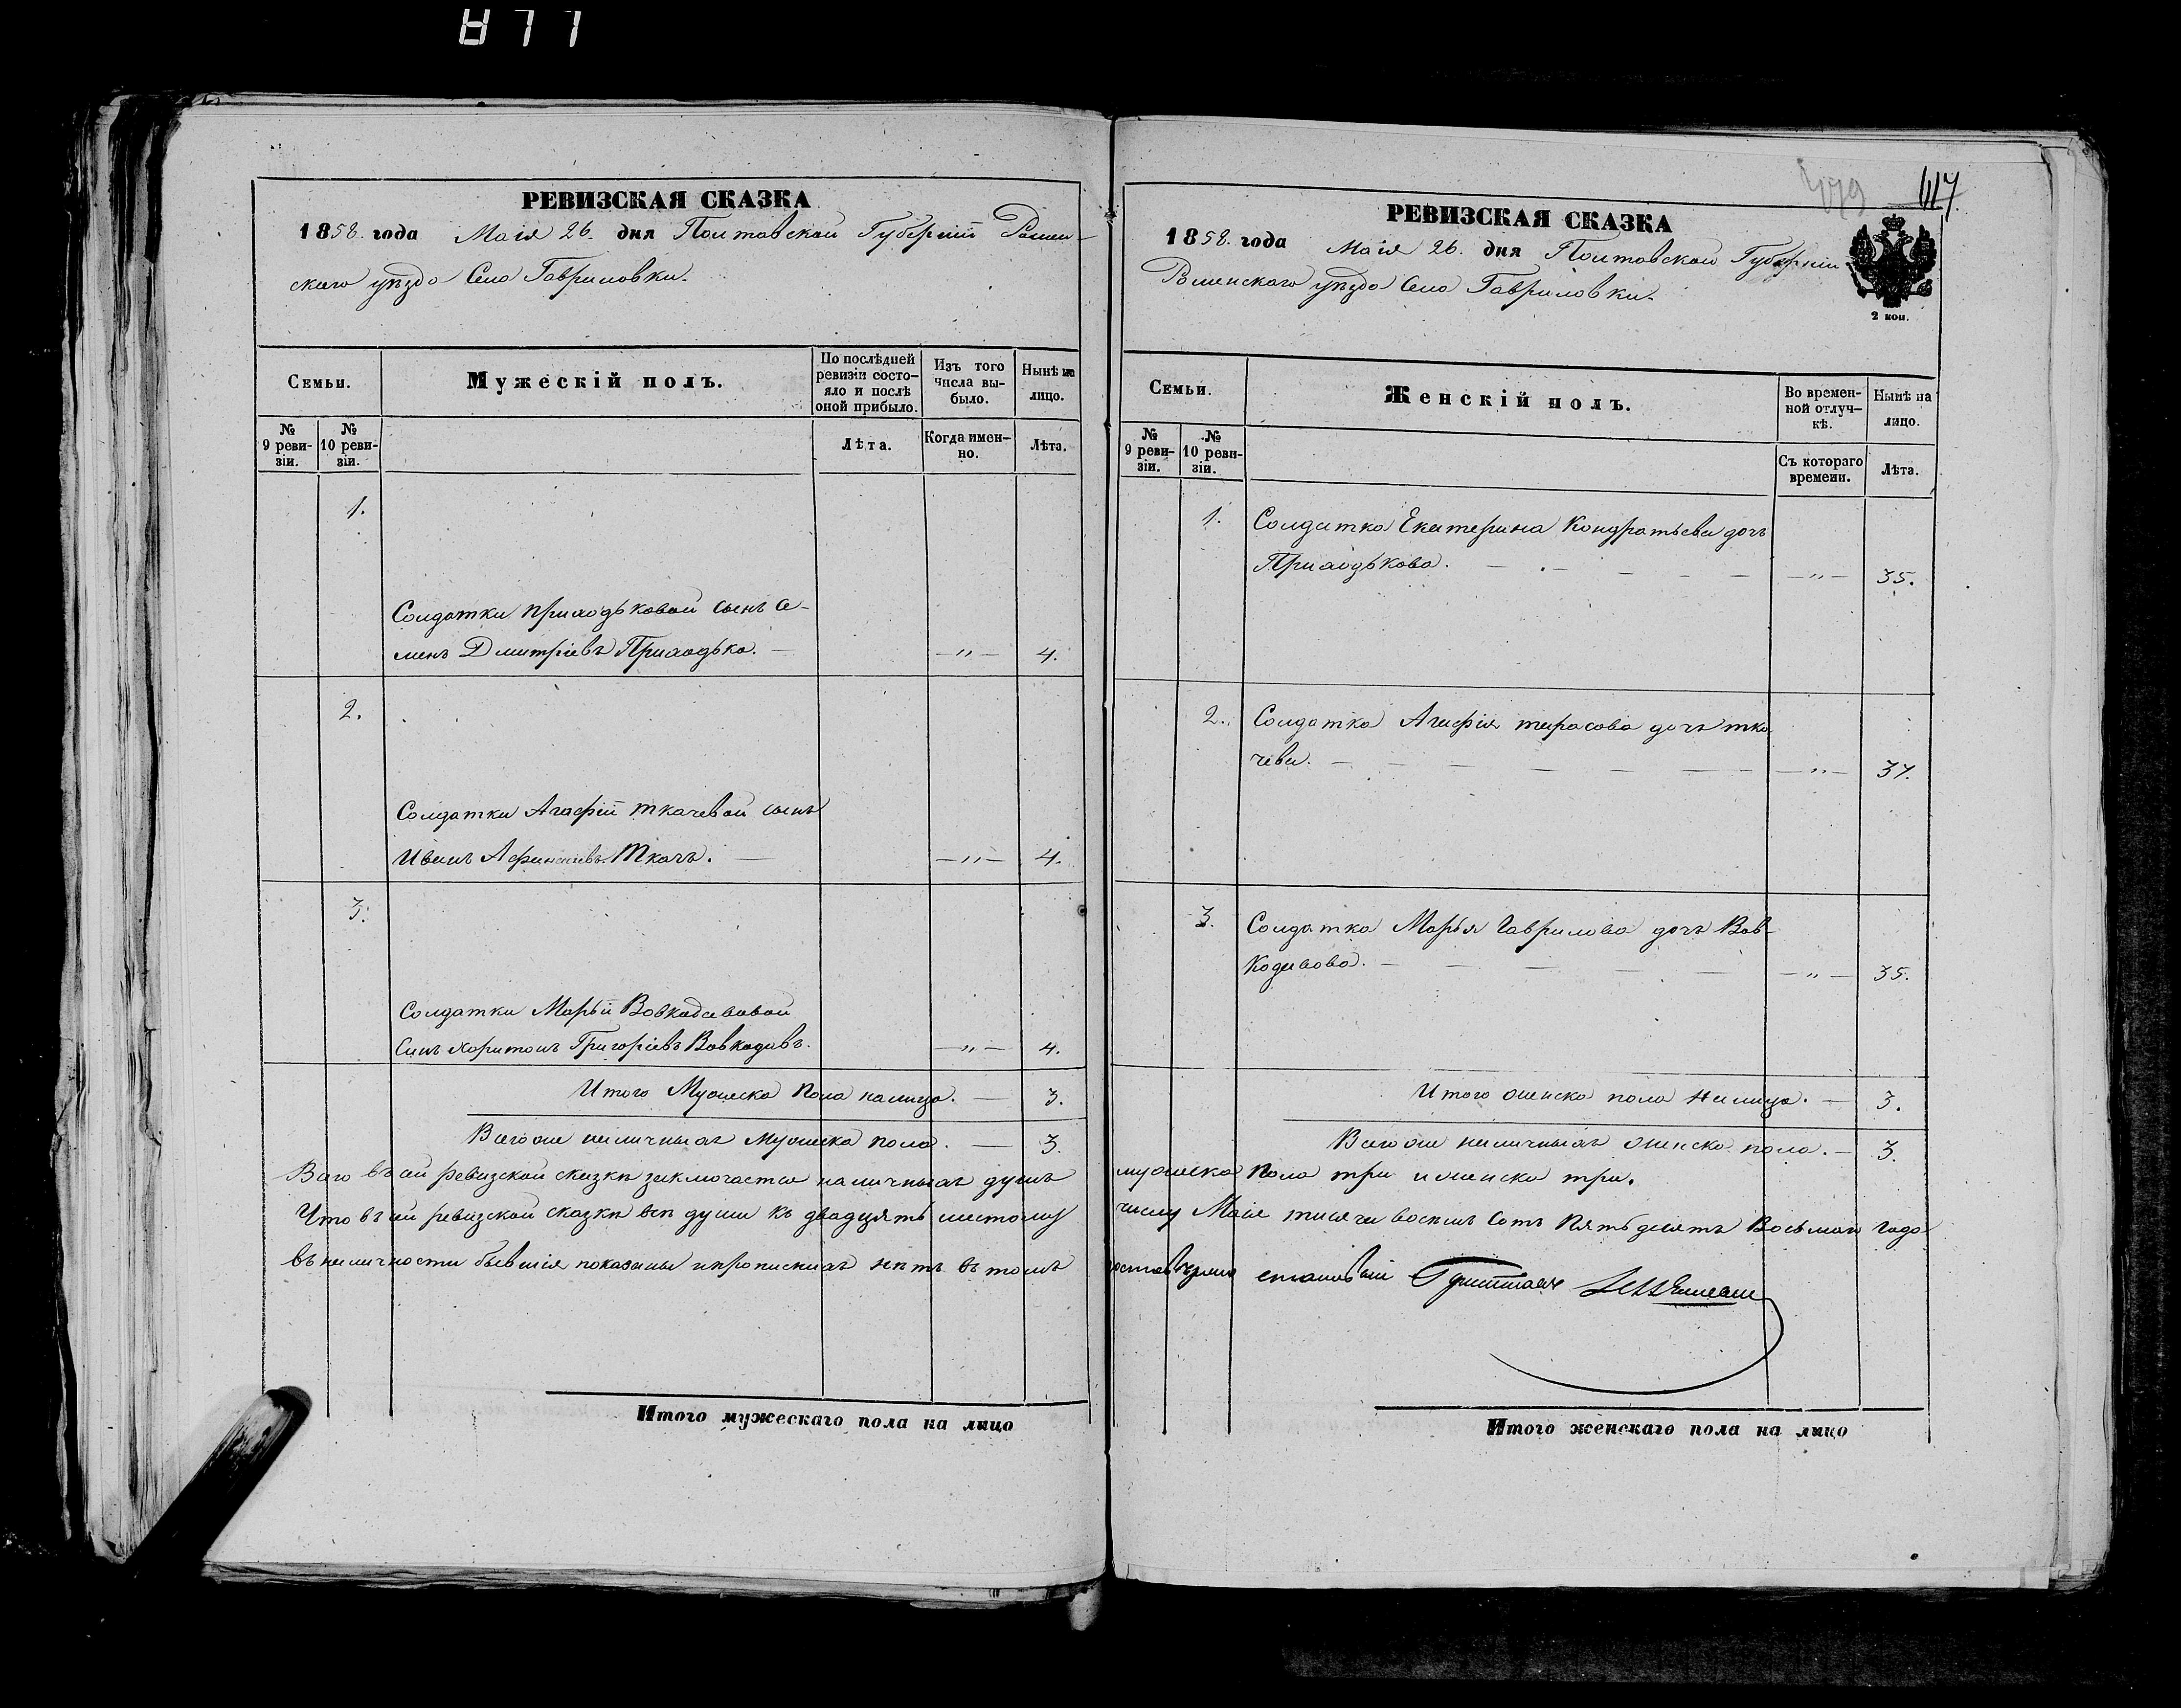 РЕВИЗСКАЯ СКАЗКА
1858. года Маія 26. дня Полтавской Губерніи Ромен-
скаго уѣзда Села Гавриловки.
Семьи.
Мужескій полъ.
По послѣдней ревизіи состо-яло и послѣ оной прибыло.
Изъ того числа вы-было.
Нынѣ на лицо.
№ 9 реви-зіи.
№ 10 реви-зіи.
Лѣта.
Когда имен-но.
Лѣта.
1.
Солдатки Приходьковой сынъ Се-
менъ Дмитріевъ Приходько. — — " — 4.
2.
Солдатки Агафіи Ткачевой сынъ
Иванъ Афанасіевъ Ткачъ. — — " — 4.
3.
Солдатки Марьи Вовкодавовой
Сынъ Харитонъ Григоріевъ Вовкодавъ. — " — 4.
Итого Мужеска Пола налицо. — 3.
Всего же наличныхъ Мужеска пола. — 3.
Всего въ сей ревизской сказкѣ заключается наличныхъ душъ
Что въ сей ревизской сказкѣ всѣ души къ двадцать шестому
въ наличности бывшія показаны и прописныхъ нѣтъ въ томъ
Итого мужескаго пола на лицо
479
417
РЕВИЗСКАЯ СКАЗКА
1858. года Маія 26. дня Полтавской Губерніи
Роменскаго уѣзда Села Гавриловки.
2 коп.
Семьи.
Женскій полъ.
Во времен-ной отлуч-кѣ.
Нынѣ на лицо.
№ 9 реви-зіи.
№ 10 реви-зіи.
Съ котораго времени.
Лѣта.
1. Солдатка Екатерина Кондратьева дочь
Приходькова. — " — 35.
2. Солдатка Агафія тарасова дочь тка
чева. — " — 37.
3. Солдатка Марья Гаврилова дочь Вов-
кодавова. — " — 35.
Итого женска пола налицо. — 3.
Всего же наличныхъ женска пола. — 3.
мужеска Пола три и женска три.
числу Маія тисяча восемь Сотъ Пятьдесятъ Восьмаго Года
становый Приставъ
Итого женскаго пола на лицо